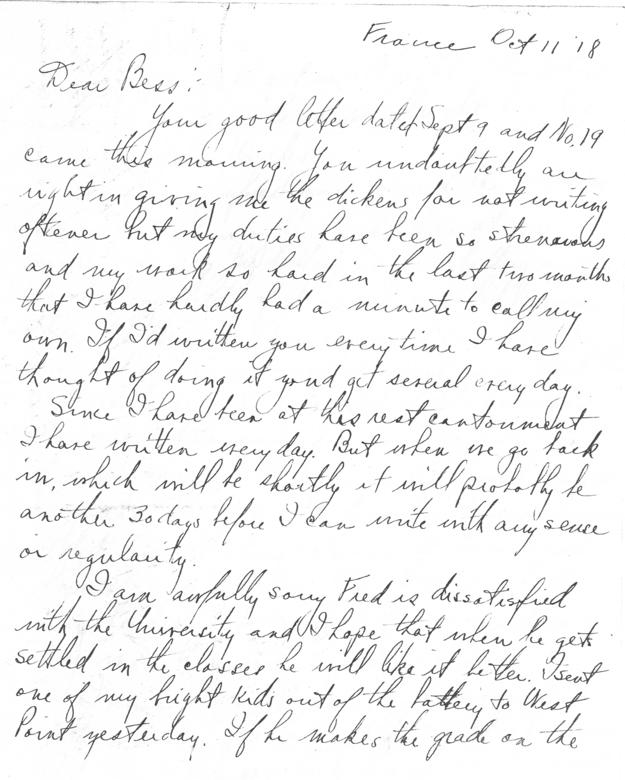 France Oct 11 '18
Dear Bess:
Your good letter dated Sept 9 and No. 19
came this morning. You undoubtedly are
right in giving me the dickens for not writing
oftener but my duties have been so strenuous
and my work so hard in the last two months
that I have hardly had a minute to call my
own. If I'd written you every time I have
thought of doing it you'd get several every day.
Since I have been at this rest cantonment
I have written every day. But when we go back
in, which will be shortly it will probably be
another 30 days before I can write with any sense
or regularity.
I am awfully sorry Fred is dissatisfied
with the University and I hope that when he gets
settled in the classes he will like it better. I sent
one of my bright kids out of the battery to West
Point yesterday. If he makes the grade on the